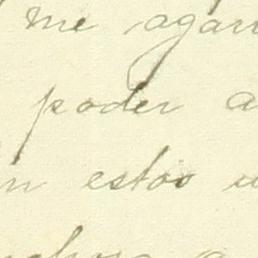 me agar
poder a
n estoo u